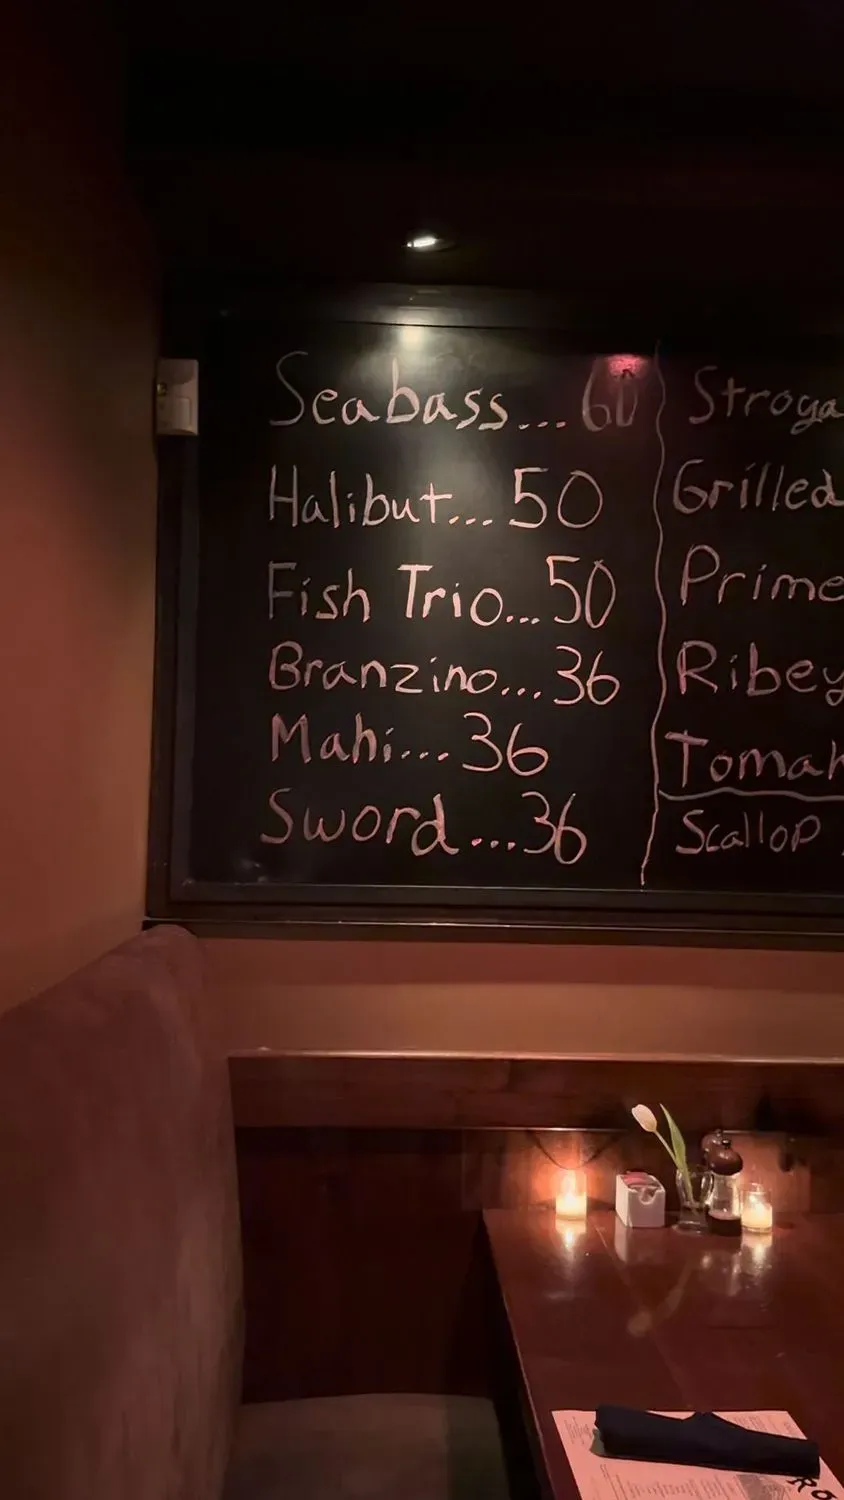 Seabass...60
Halibut...50
Fish Trio...50
Branzino...36
Mahi...36
Sword...36
Stroga
Grilled
Prime
Ribey
Tomah
Scallop